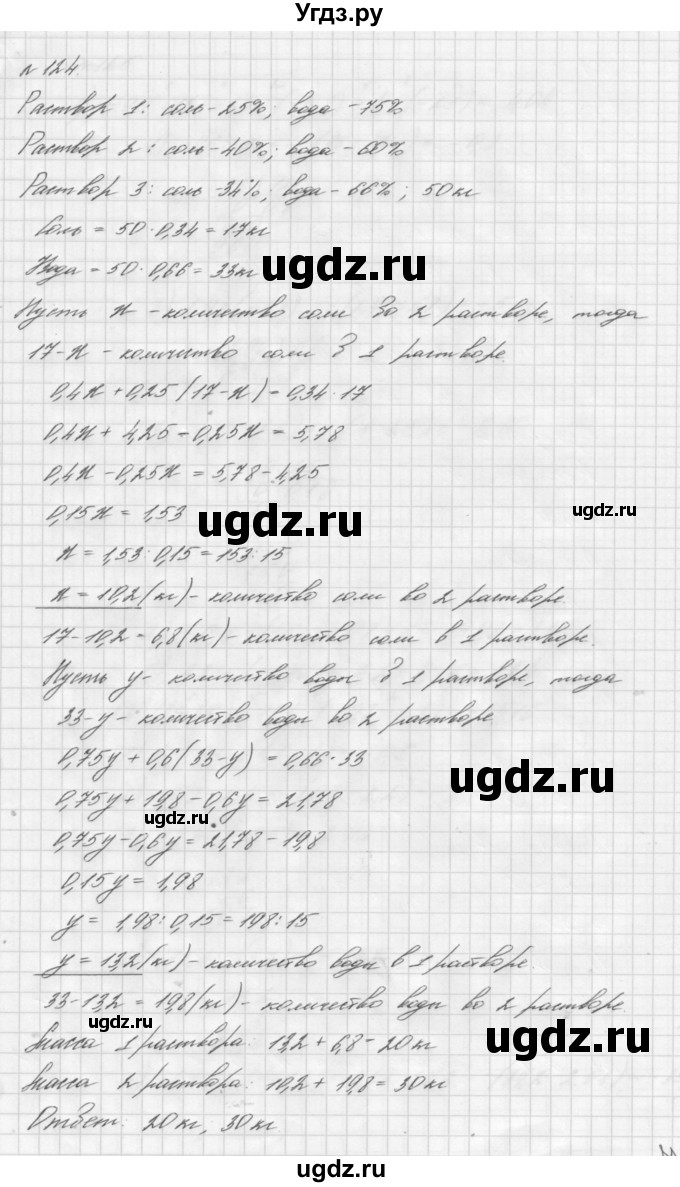 Угдз.ру
№ 124.
Раствор 1: соль-25%; вода -75%
Раствор 2: соль-40%; вода -60%
Раствор 3: соль-34%; вода-66%; 50кг
Соль = 50·0,34=17кг
Вода = 50·0,66=33кг
ugdz.ru
Пусть x - количество соли во 2 растворе, тогда
17-x - количество соли в 1 растворе.
0,4x+0,25(17-x)=0,34·17
0,4x+4,25-0,25x=5,78
0,4x-0,25x=5,78-4,25
0,15x=1,53
ugdz.ru
ugdz.ru
x=1,53:0,15=153:15
x=10,2(кг)- количество соли во 2 растворе.
17-10,2=6,8(кг)- количество соли в 1 растворе.
Пусть y- количество воды в 1 растворе, тогда
33-y- количество воды во 2 растворе
0,75y+0,6(33-y)=0,66·33
ugdz.ru
0,75y+19,8-0,6y=21,78
ugdz.ru
0,75y-0,6y=21,78-19,8
0,15y=1,98
y=1,98:0,15=198:15
y=13,2(кг)- количество воды в 1 растворе.
33-13,2=19,8(кг)- количество воды во 2 растворе.
Масса 1 раствора: 13,2+6,8-20кг
ugdz.ru
Масса 2 раствора: 10,2+19,8=30кг
Ответ: 20кг; 30кг
ugdz.ru